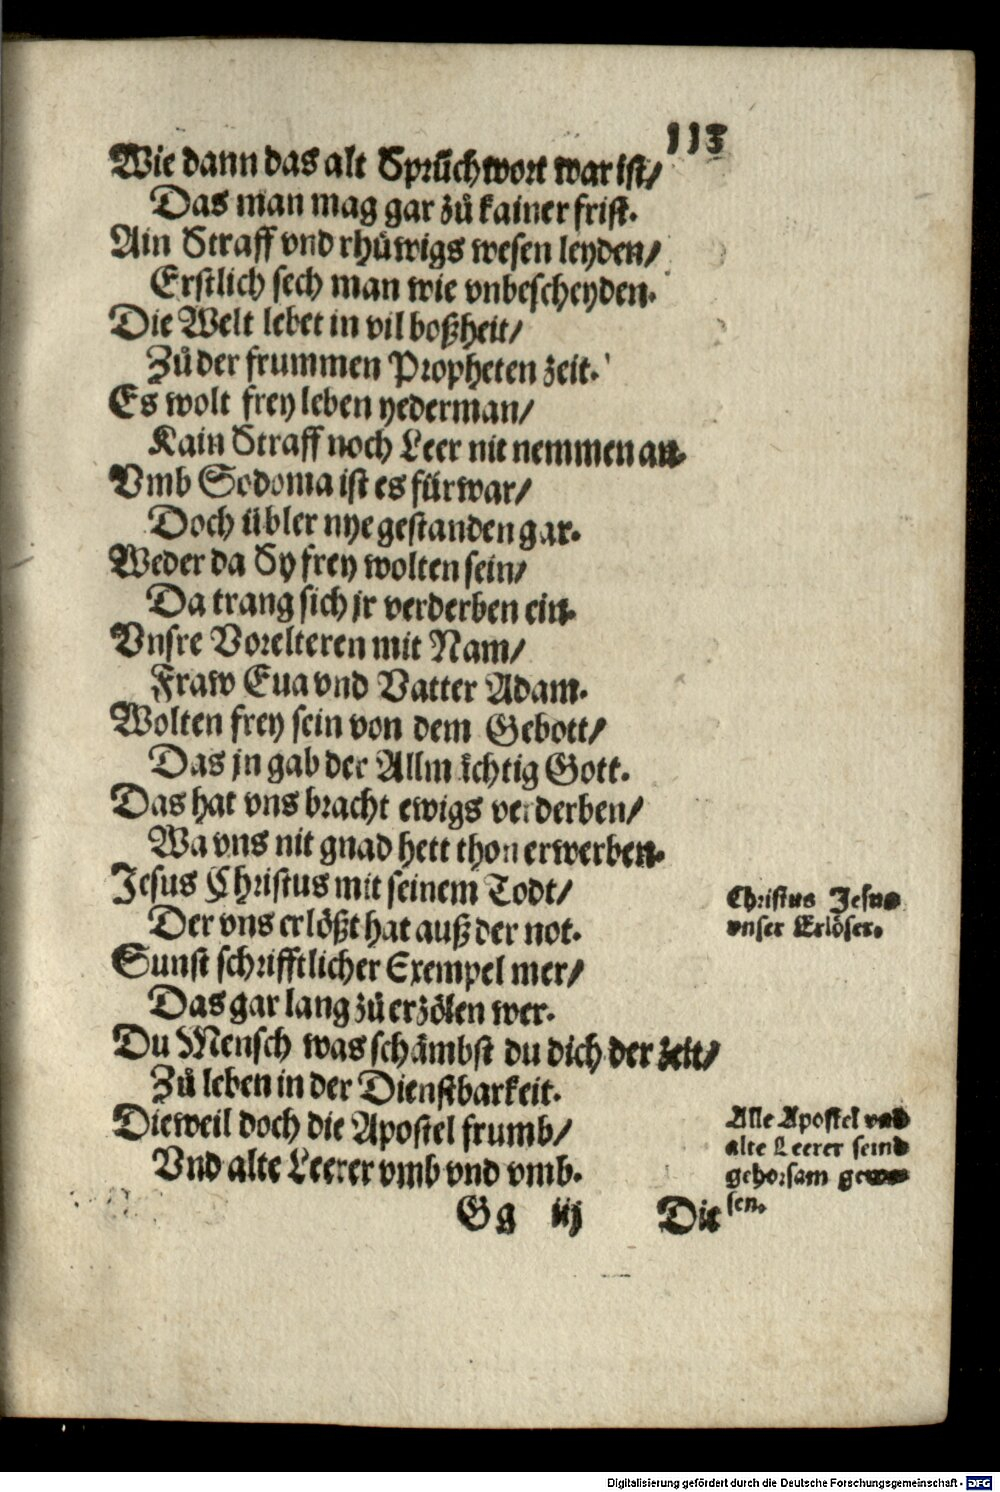 113
Wie dann das alt Sprüchwort war ist/
Das man mag gar zů kainer frist.
Ain Straff vnd rhůwigs wesen leyden/
Erstlich sech man wie vnbescheyden.
Die Welt lebet in vil boßheit/
Zů der frummen Propheten zeit.
Es wolt frey leben yederman/
Kain Straff noch Leer nit nemmen an.
Vmb Sodoma ist es fürwar/
Doch übler nye gestanden gar.
Weder da Sy frey wolten sein/
Da trang sich jr verderben ein.
Vnsre Vorelteren mit Nam/
Fraw Eua vnd Vatter Adam.
Wolten frey sein von dem Gebott/
Das jn gab der Allmächtig Gott.
Das hat vns bracht ewigs verderben/
Wa vns nit gnad hett thon erwerben.
Jesus Christus mit seinem Todt/
Der vns erlößt hat auß der not.
Christus Jesus
vnser Erlöser.
Sunst schrifftlicher Exempel mer/
Das gar lang zů erzölen wer.
Du Mensch was schämbst du dich der zeit/
Zů leben in der Dienstbarkeit.
Dieweil doch die Apostel frumb/
Vnd alte Leerer vmb vnd vmb.
Alle Apostel vnd
alte Leerer seind
gehorsam gewe
sen.
Gg iij Die
Digitalisierung gefördert durch die Deutsche Forschungsgemeinschaft - DFG